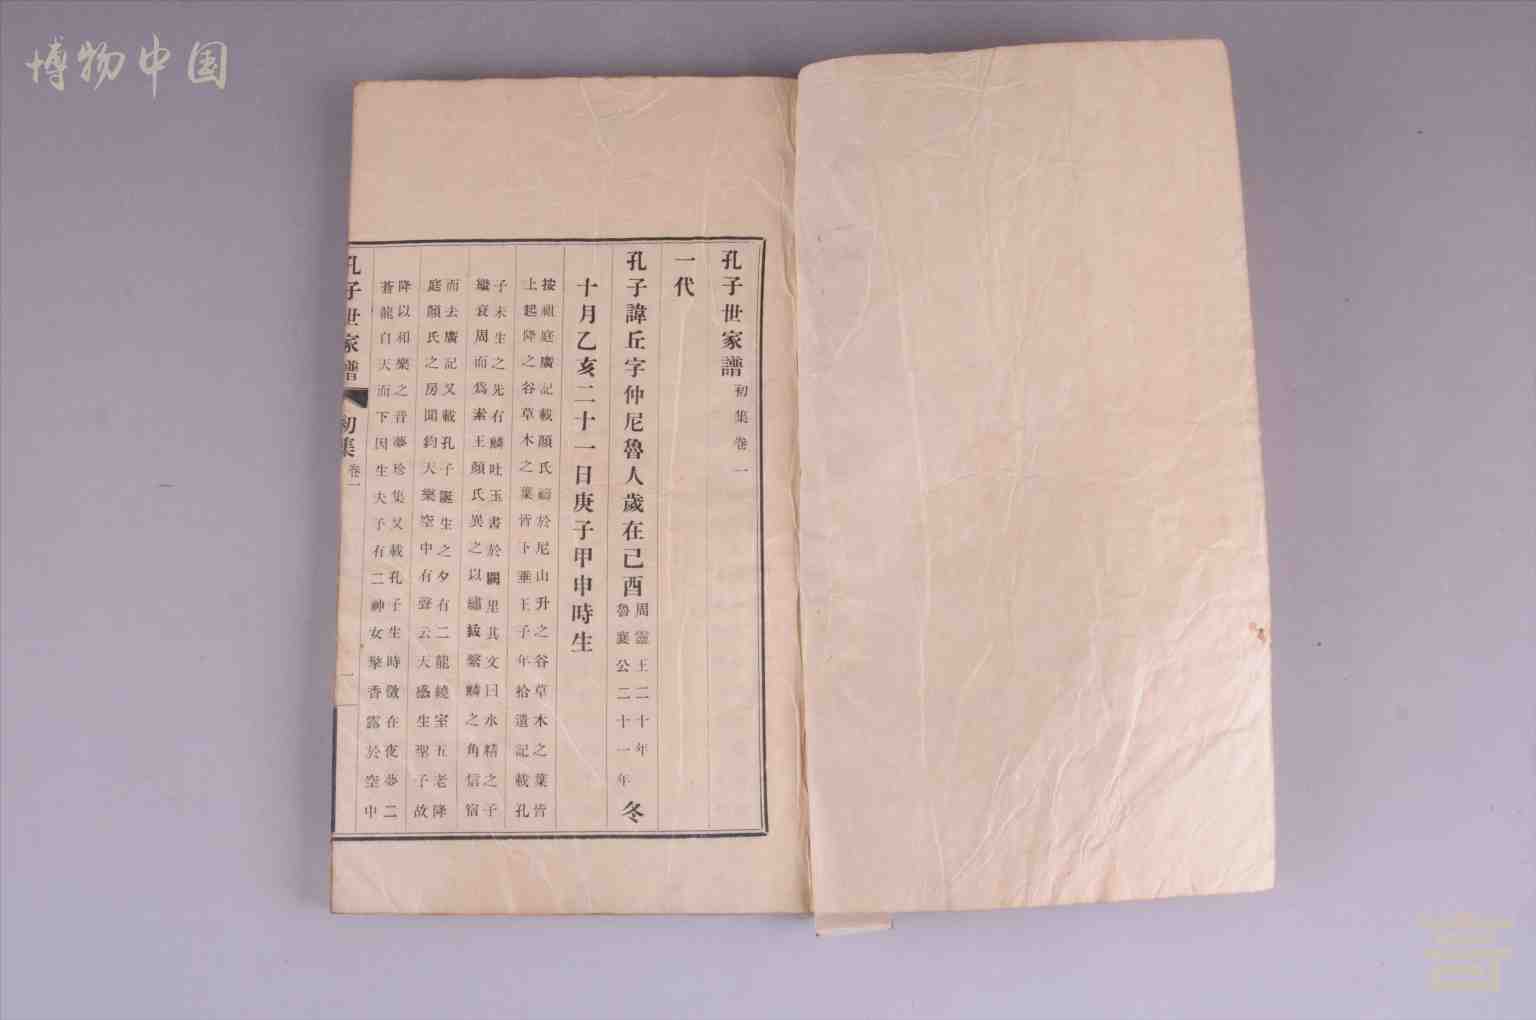 博物中国
孔子世家譜 初集卷一
一代
孔子諱丘字仲尼魯人歲在己酉 周靈王二十年 魯襄公二十一年 冬
十月乙亥二十一日庚子甲申時生
按祖庭廣記載顏氏禱於尼山升之谷草木之葉皆
上起降之谷草木之葉皆下垂王子年拾遺記載孔
子未生之先有麟吐玉書於闕里其文曰水精之子
繼衰周而爲素王顏氏異之以繡紱繫麟之角信宿
而去廣記又載孔子誕生之夕有二龍繞室五老降
庭顏氏之房聞鈞天樂空中有聲云天感生聖子故
降以和樂之音夢珍集又載孔子生時徵在夜夢二
蒼龍自天而下因生夫子有二神女擎香露於空中
孔子世家譜 初集 卷一 一